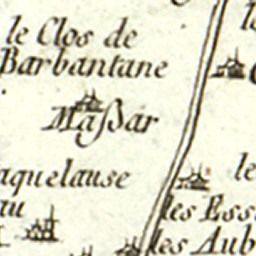 le Clos de
Barbantane
Maßar
aquelause
au
le
les Ess
les Aub